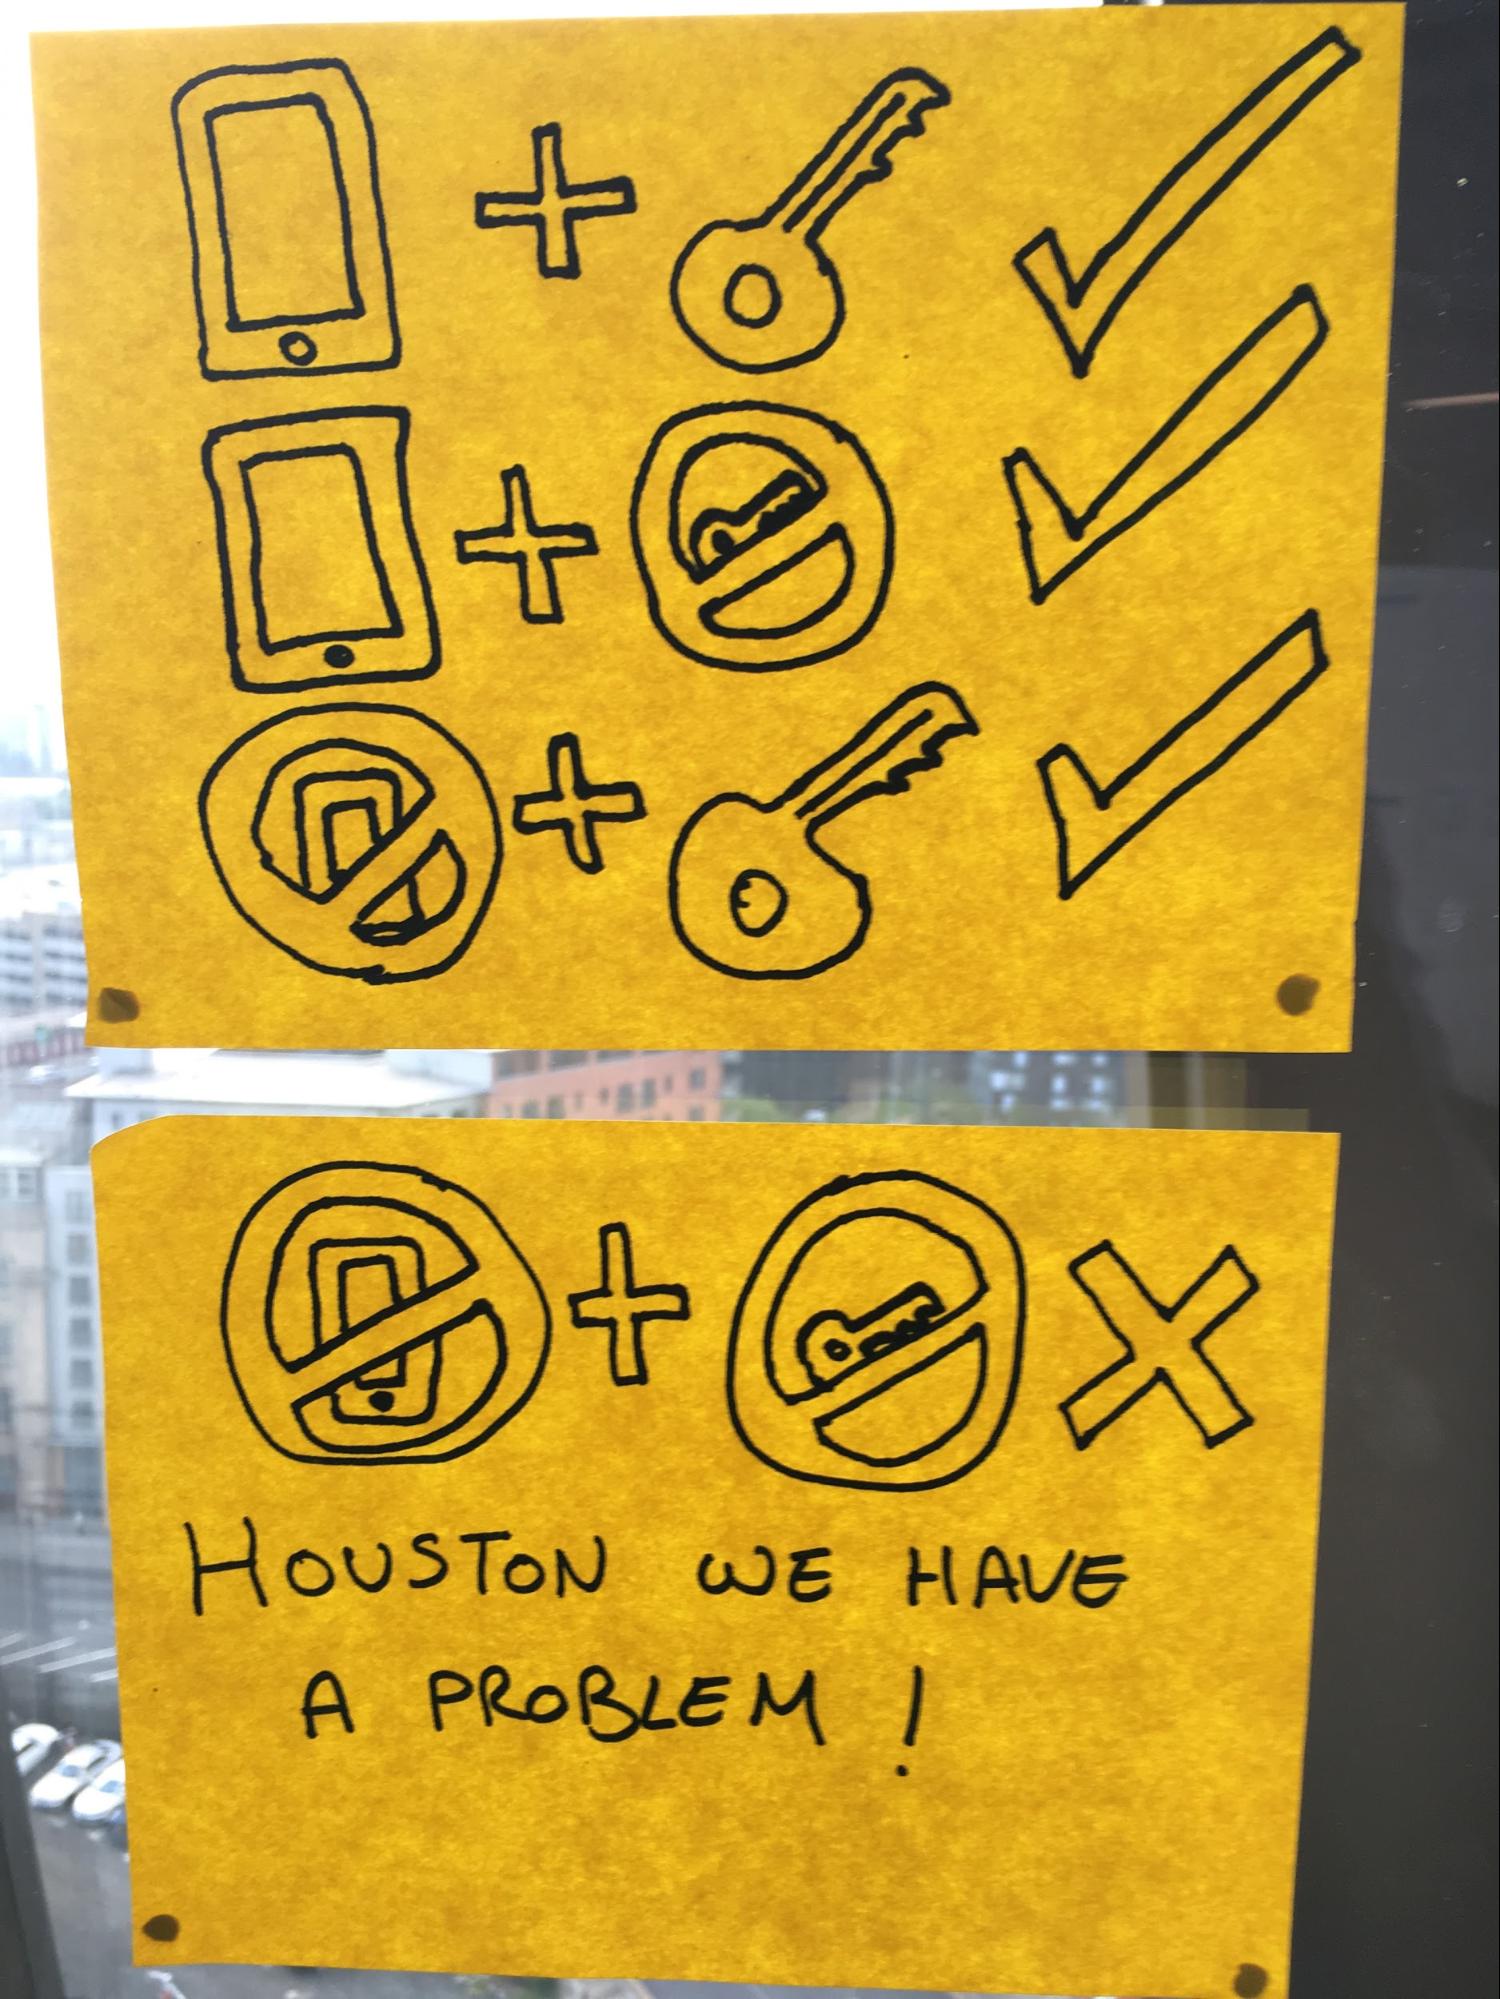 HOUSTON WE HAVE
A PROBLEM !